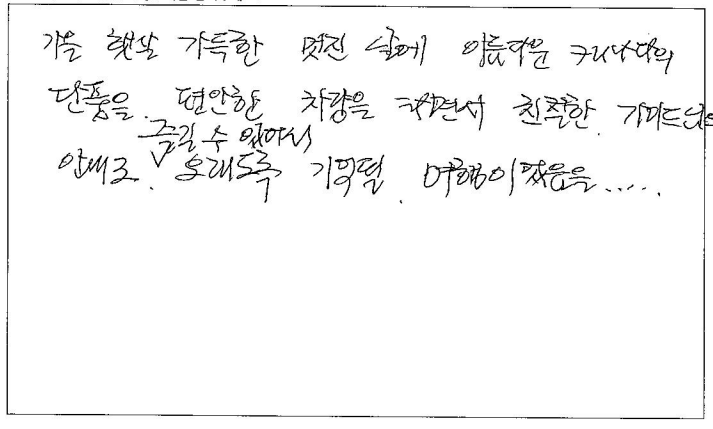 가을 햇살 가득한 멋진 날에 아름다운 캐나다의
단풍을 편안한 차량을 타면서 친절한 가이드님의
즐길 수 있어서
안내로 오래도록 기억될 여행이었음을.....